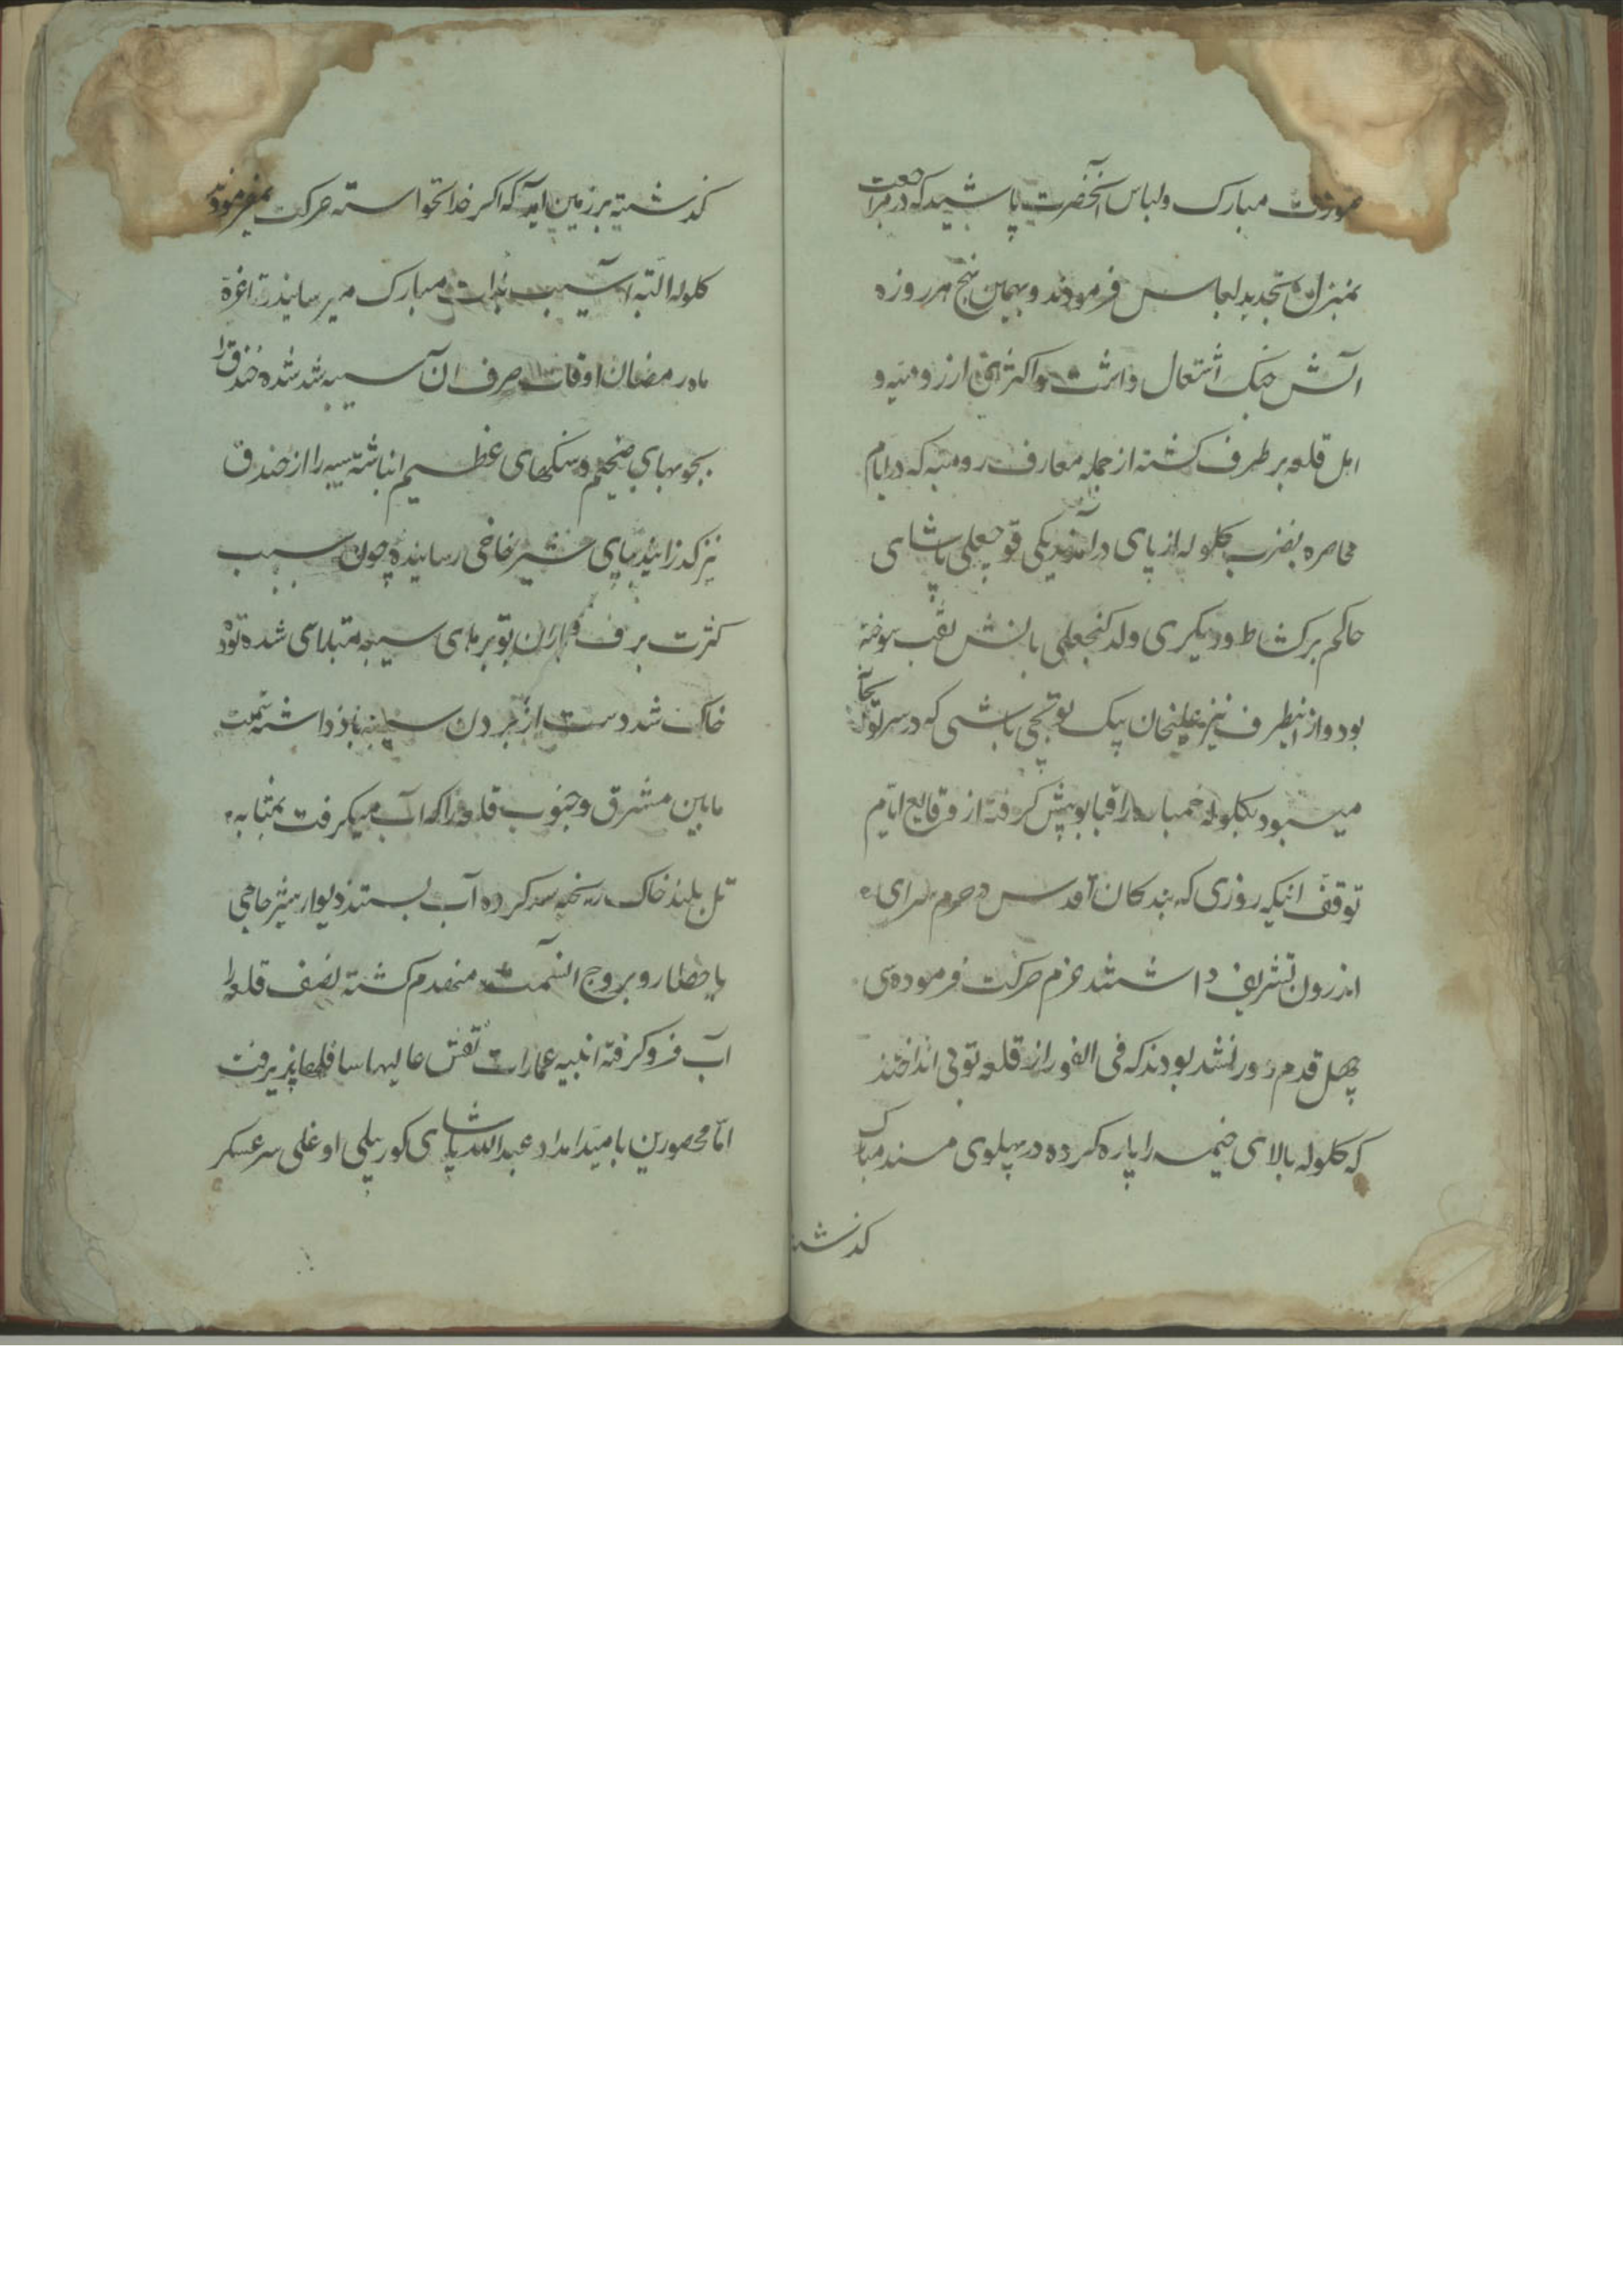 صورت مبارک ولباس آنحضرت پاشید که در مراجعت
بمنزل تجدید لباس فرمودند و بهمین نهج هر روزه
آتش جنک اشتعال داشت و اکثری از رومیه و
اهل قلعه بر طرف کشته از جمله معارف رومیه که در ایام
محاصره بضرب کلوله از پای درآمدند یکی قوچعلی پاشای
حاکم برکشاط و دیکری ولد کنجعلی باتش نقب سوخته
بود و از انطرف نیز علیخان بیک توپچی باشی که در سر توپخانه
میبود بکلوله خمپاره راه فنا پیش کرفته از وقایع ایام
توقف اینکه روزی که بندکان اقدس در حرم سرای
اندرون تشریف داشتند عزم حرکت فرموده سی
چهل قدم دور نشد بودند که فی الفور از قلعه توپی انداختند
که کلوله بالای خیمه را پاره کرده در پهلوی مسند مبارک
کذشته
کذشته بر زمین آمد که اکر خدانخواسته حرکت نمیفرمودند
کلوله البته آسیب بذات مبارک میرسانید تا غره
ماه رمضان اوقات صرف آن سیبه شد شده خندق را
بچوبهای ضخیم و سنکهای عظیم انباشته سیبه را از خندق
نیز کذرانیده بپای شیر حاجی رسانیده چون سبب
کثرت برف و باران توبرهای سیبه متلاشی شده توده
خاک شد دست از بردن سیبه باز داشته سمت
مابین مشرق و جنوب قلعه را که آب میکرفت بمثابه
تل بلند خاک ریخته سد کرده آب بستند دیوار شیر حاجی
با حصار و بروج السمت منهدم کشته نصف قلعه را
آب فرو کرفته ابنیه عمارات نقش عالیها سافلها پذیرفت
اما محصورین بامید امداد عبدالله پاشای کورپلی اوغلی سرعسکر